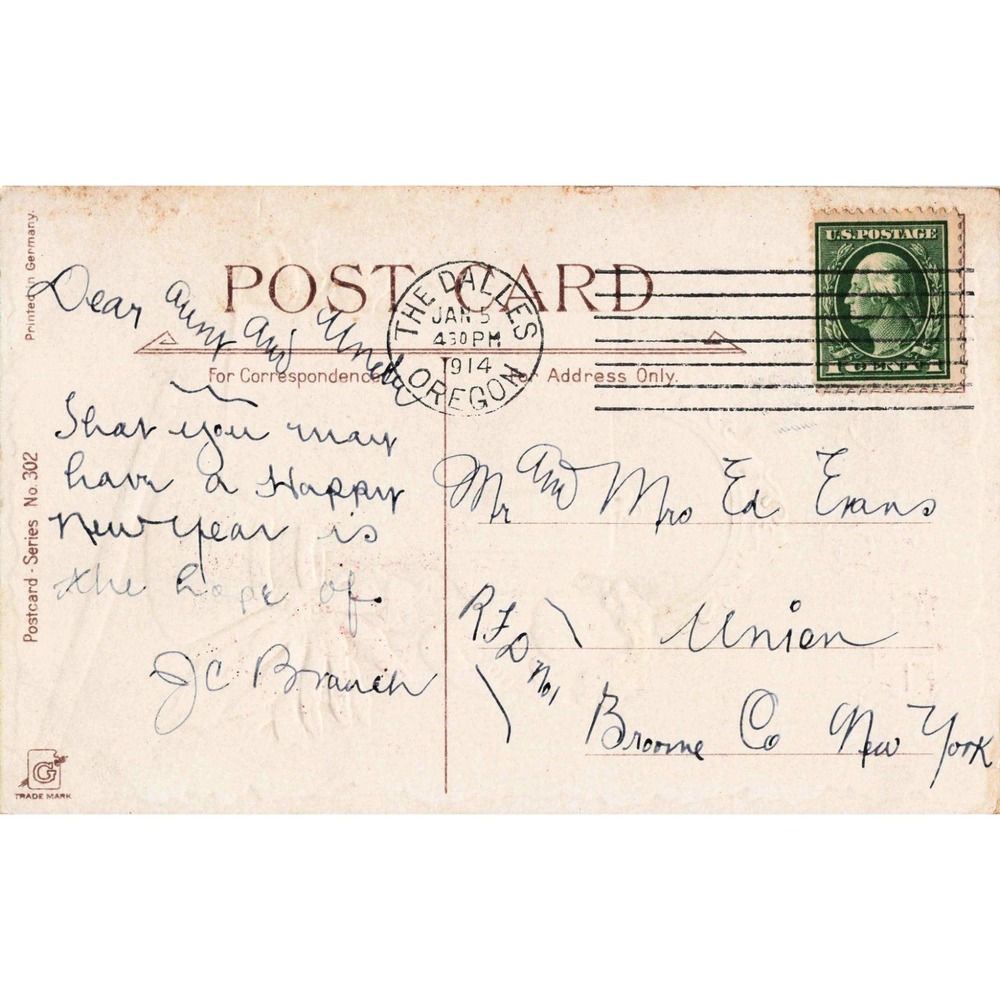 POST CARD
For Correspondence
For Address Only.
Printed in Germany.
Postcard - Series No. 302
G
TRADE MARK
THE DALLES
JAN 5
430 PM
1914
OREGON
U.S. POSTAGE
1 CENT 1
Dear Aunt and Uncle
That you may
have a Happy
New year is
the hope of.
J C Branch
Mr and Mrs Ed Evans
RFD No 1
Union
Broome Co New York